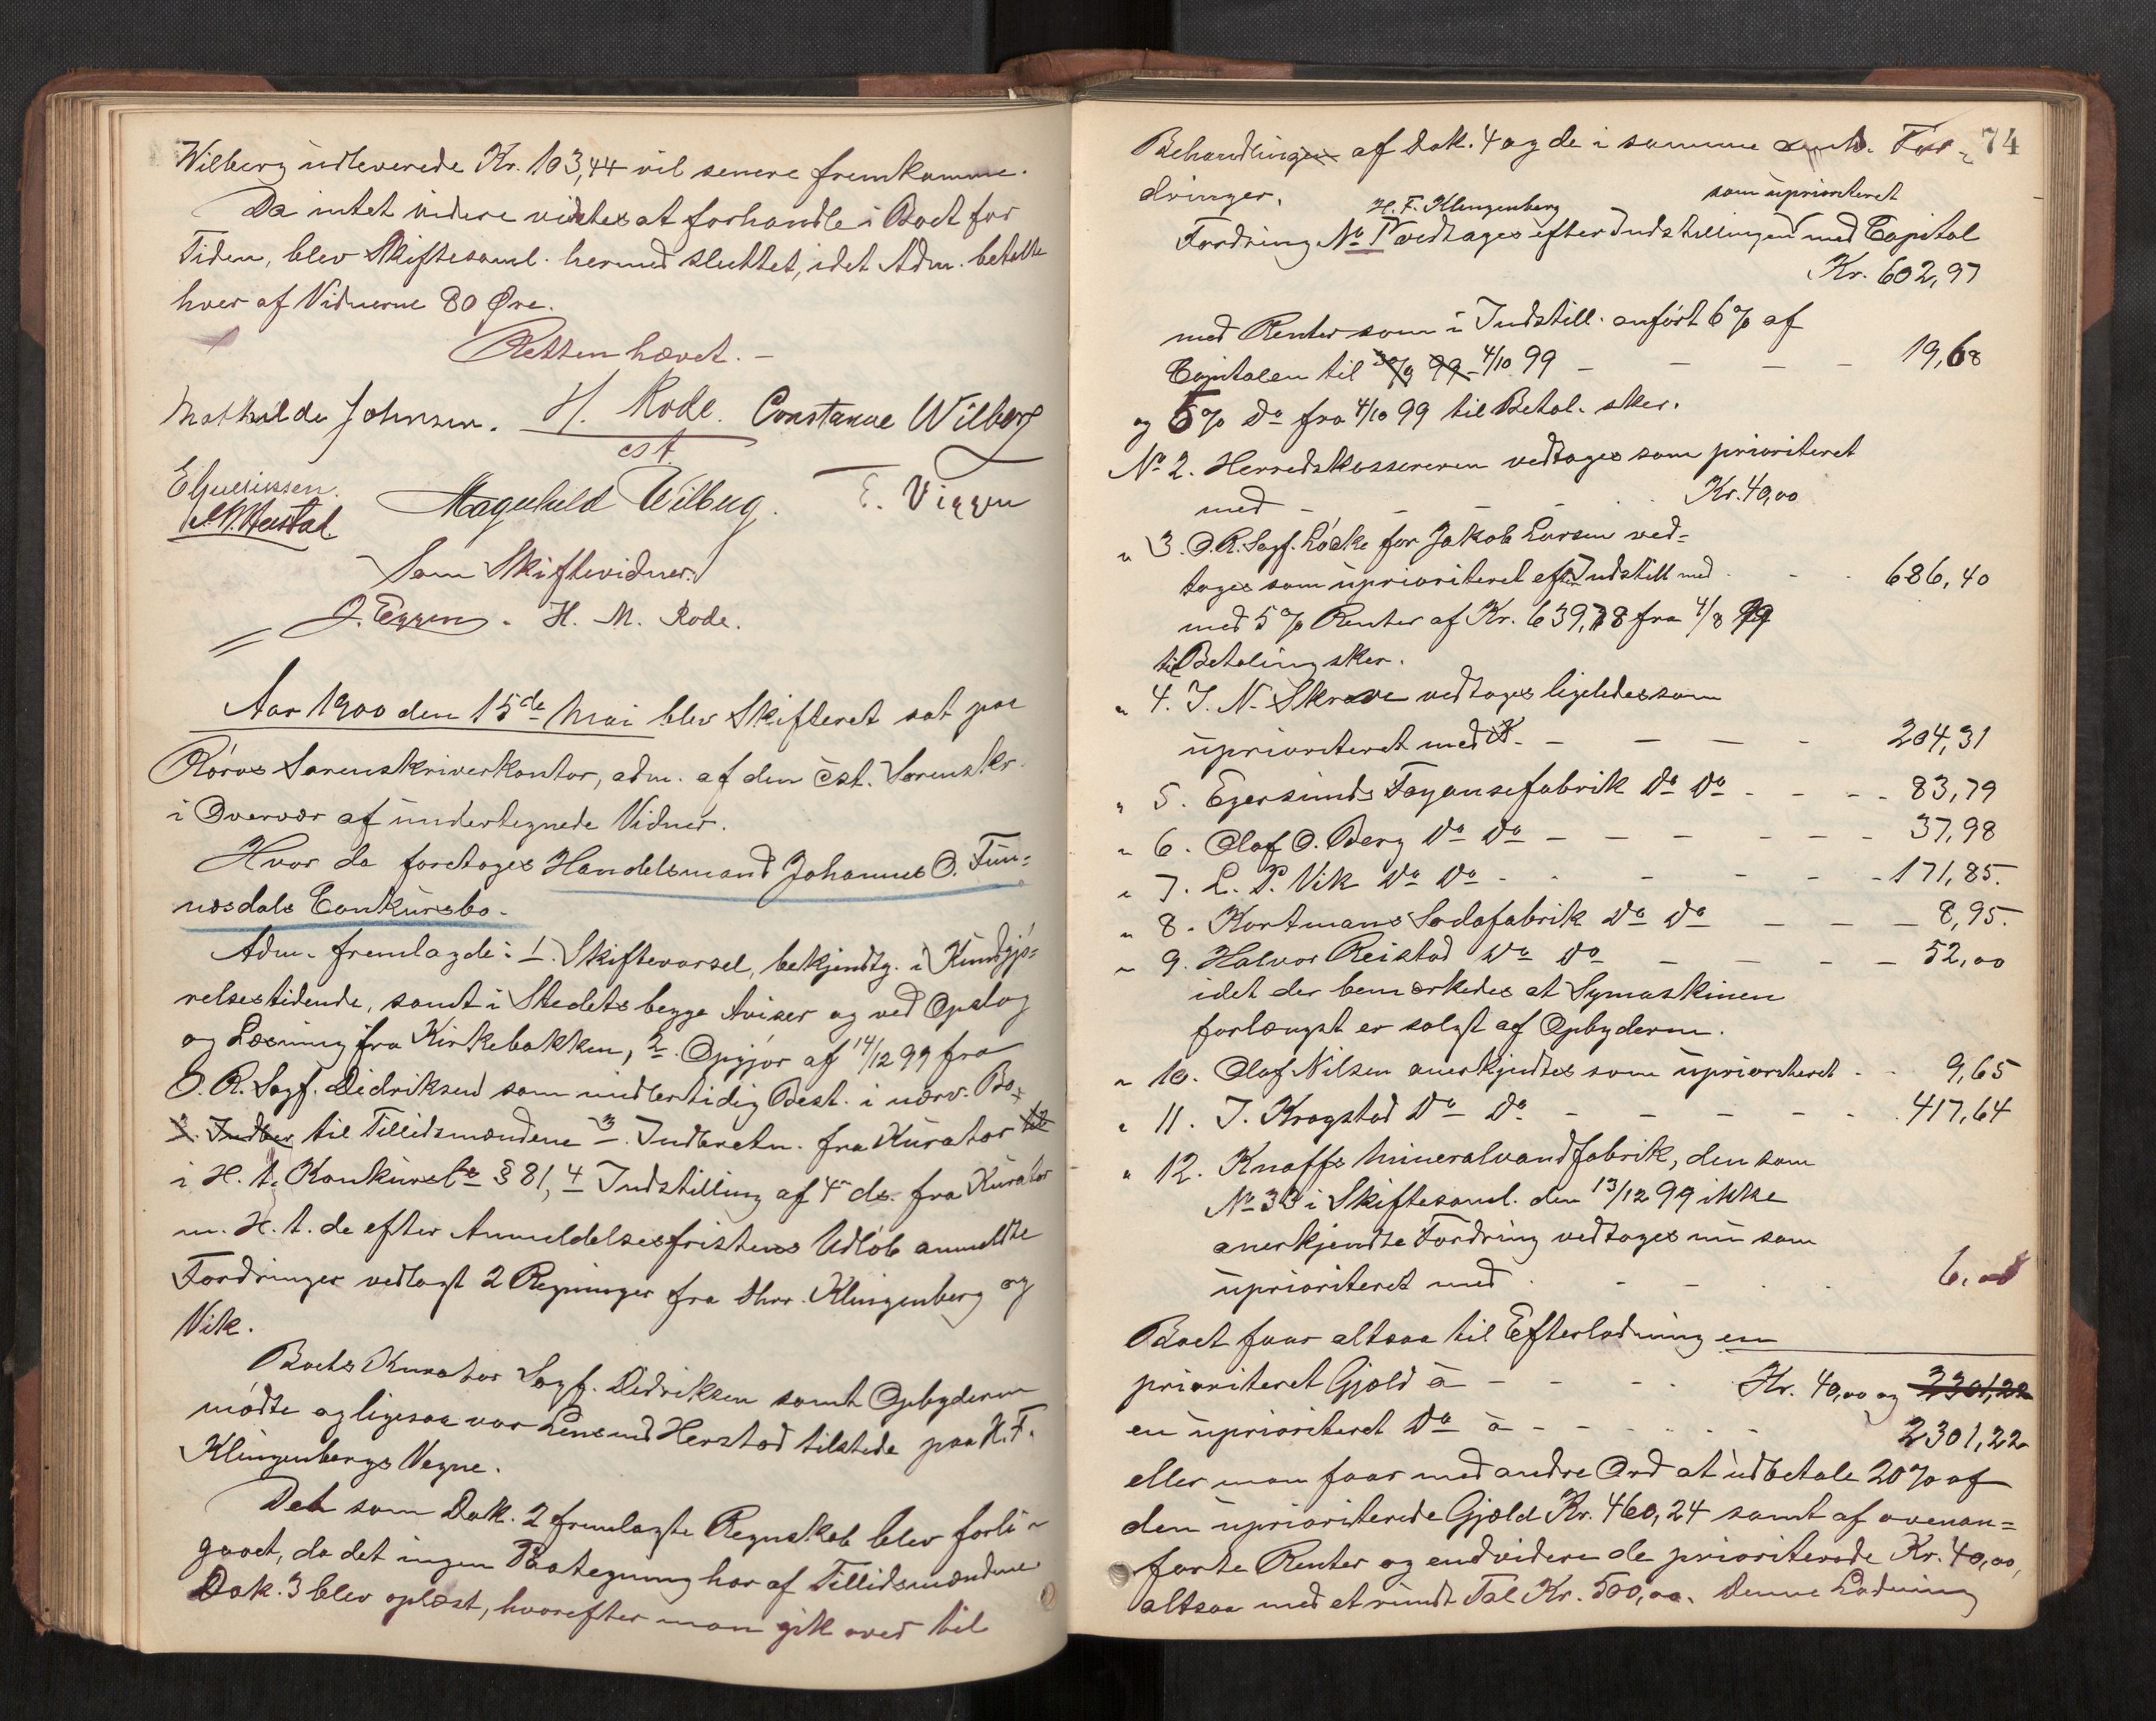 Wilberg udleverede Kr. 103,44 vil senere fremkomme.
Da intet videre vidstes at forhandle i Boet for
Tiden, blev Skiftesaml. hermed sluttet, idet Adm. betalte
hver af Vidnerne 80 Øre.
Retten hævet. –
Mathilde Johnsen. H. Rode. Constance Wilberg
cst.
Magnhild Wilberg. E. Viggen
Som Skiftevidner:
J. Eggen. H. M. Rode.
Aar 1900 den 15de Mai blev Skifteret sat paa
Röros Sorenskriverkontor, adm. af den cst. Sorenskr.
i Overvær af undertegnede Vidner.
Hvor da foretages Handelsmand Johannes O. Fun=
næsdals Conkursbo.
Adm. fremlagde: 1. Skiftevarsel, bekjendtg. i Kundgjö=
relsestidende, samt i Stedets begge Aviser og ved Opslag
og Læsning fra Kirkebakken, 2. Opgjör af 14/12 99 fra
O. R. Sagf. Didriksen som midlertidig Best. i nærv. Bo
3. Indber til Tillidsmændene 3. Indberetn. fra Kurator til
i H. t. Konkursl. § 81, 4 Indstilling af 4 ds. fra Kurator
m. H. t. de efter Anmeldelsesfristens Udløb anmeldte
Fordringer vedlagt 2 Regninger fra Hrr. Klingenberg og
Vik.
Boets Kurator Sagf. Didriksen samt Opbyderen
mödte og ligesaa var Lensmd Herstad tilstede paa H. F.
Klingenbergs Vegne.
Det som Dok. 2 fremlagte Regnskab blev forbi=
gaaet, da det ingen Paategning har af Tillidsmændene
Dok. 3 blev oplæst, hvorefter man gik over til
74
Behandlingen af Dok. 4 og de i samme omh. For=
dringer.
H. F. Klingenberg som uprioriteret
Fordring No 1 vedtages efter Indstillingen med Capital
Kr. 602,97
med Renter som i Indstill. anfört 6 % af
Capitalen til 30/9 99 4/10 99 – – – – 19,68
og 5 % Do fra 4/10 99 til Betal. sker.
No 2. Herredskassereren vedtages som prioriteret
med – – – – Kr. 40,00
" 3. O.R. Sagf. Löcke for Jakob Larsen ved=
tages som uprioriteret efter Indstill med – – 686,40
med 5 % Renter af Kr. 639,78 fra 4/8 99
til Betaling sker.
" 4. J. N. Skrove vedtages ligeledes som
uprioriteret med – – – – 204,31
" 5. Egersunds Fayansefabrik Do Do – – – 83,79
" 6. Olaf O. Berg Do Do – – – – – 37,98
" 7. L. P. Vik Do Do – – – – – 171,85.
" 8. Kortmans Sodafabrik Do Do – – – 8,95.
" 9. Halvor Reistad Do Do – – – – – 52,00
idet der bemærkedes at Symaskinen
forlængst er solgt af Opbyderen.
" 10. Olaf Nilsen anerkjendtes som uprioriteret – – 9,65
" 11. J. Krogstad Do Do – – – – – 417,64
" 12. Knoffs Mineralvandfabrik, den som
No 33 i Skiftesaml. den 13/12 99 ikke
anerkjendte Fordring vedtages nu som
uprioriteret med – – – 6,00
Boet faar altsaa til Efterlodning en
prioriteret Gjæld à – – – – Kr. 40,00 og 2301,22
en uprioriteret Do à – – – – 2301,22
eller man faar med andre Ord at udbetale 20 % af
den uprioriterede Gjæld Kr. 460,24 samt af ovenan=
førte Renter og endvidere de prioriterede Kr. 40,00,
altsaa med et rundt Tal Kr. 500,00. Denne Lodning